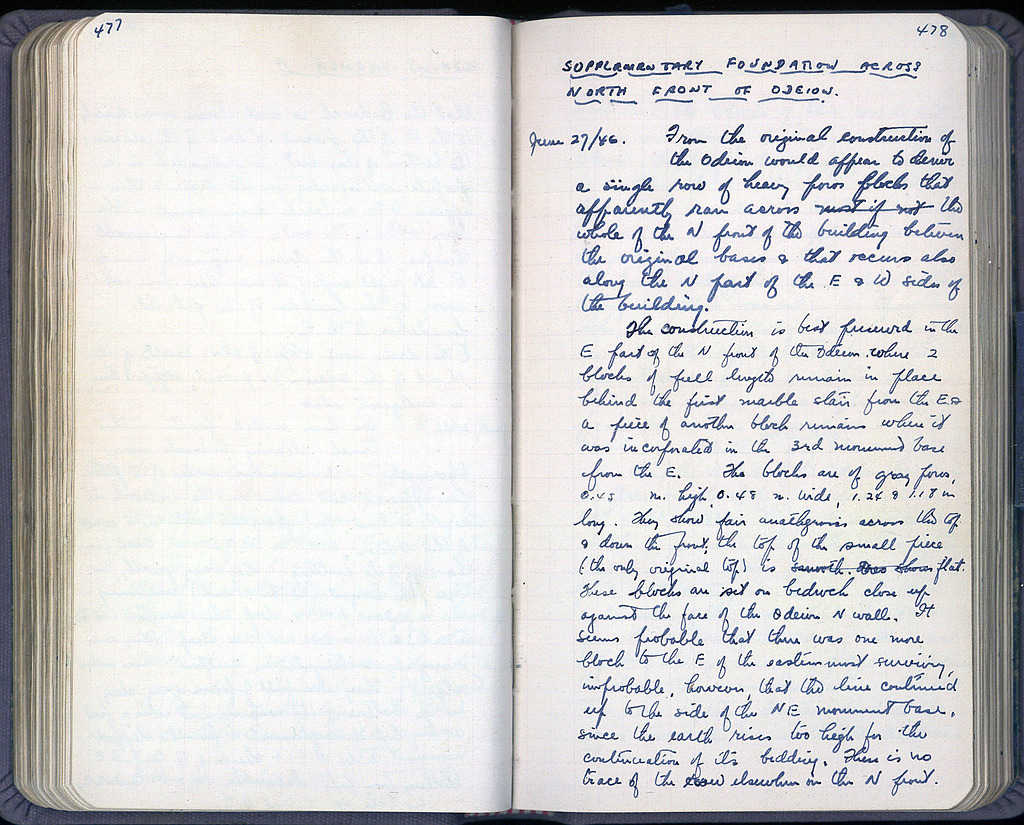 477
478
SUPPLEMENTARY FOUNDATION ACROSS
NORTH FRONT OF ODEION.
June 27/46. From the original construction of
the Odeion would appear to derive
a single row of heavy poros blocks that
apparently ran across most if not the
whole of the N front of the building between
the original bases & that occurs also
along the N part of the E & W sides of
the building.
The construction is best preserved in the
E part of the N front of the Odeion where 2
blocks of full length remain in place
behind the first marble stair from the E &
a piece of another block remains where it
was incorporated in the 3rd monument base
from the E. The blocks are of gray poros,
0.45 m. high, 0.48 m. wide, 1.24 & 1.18 m
long. They show fair anathyrosis across the top
& down the front; the top of the small piece
(the only original top) is smooth. shows flat.
These blocks are set on bedrock close up
against the face of the Odeion N wall. It
seems probable that there was one more
block to the E of the easternmost surviving,
improbable, however, that the line continued
up to the side of the NE monument base,
since the earth rises too high for the
continuation of its bedding. There is no
trace of the row elsewhere on the N front.